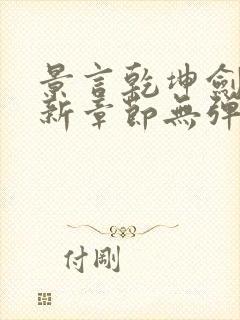 景言乾坤劍
新章節無彈
付剛